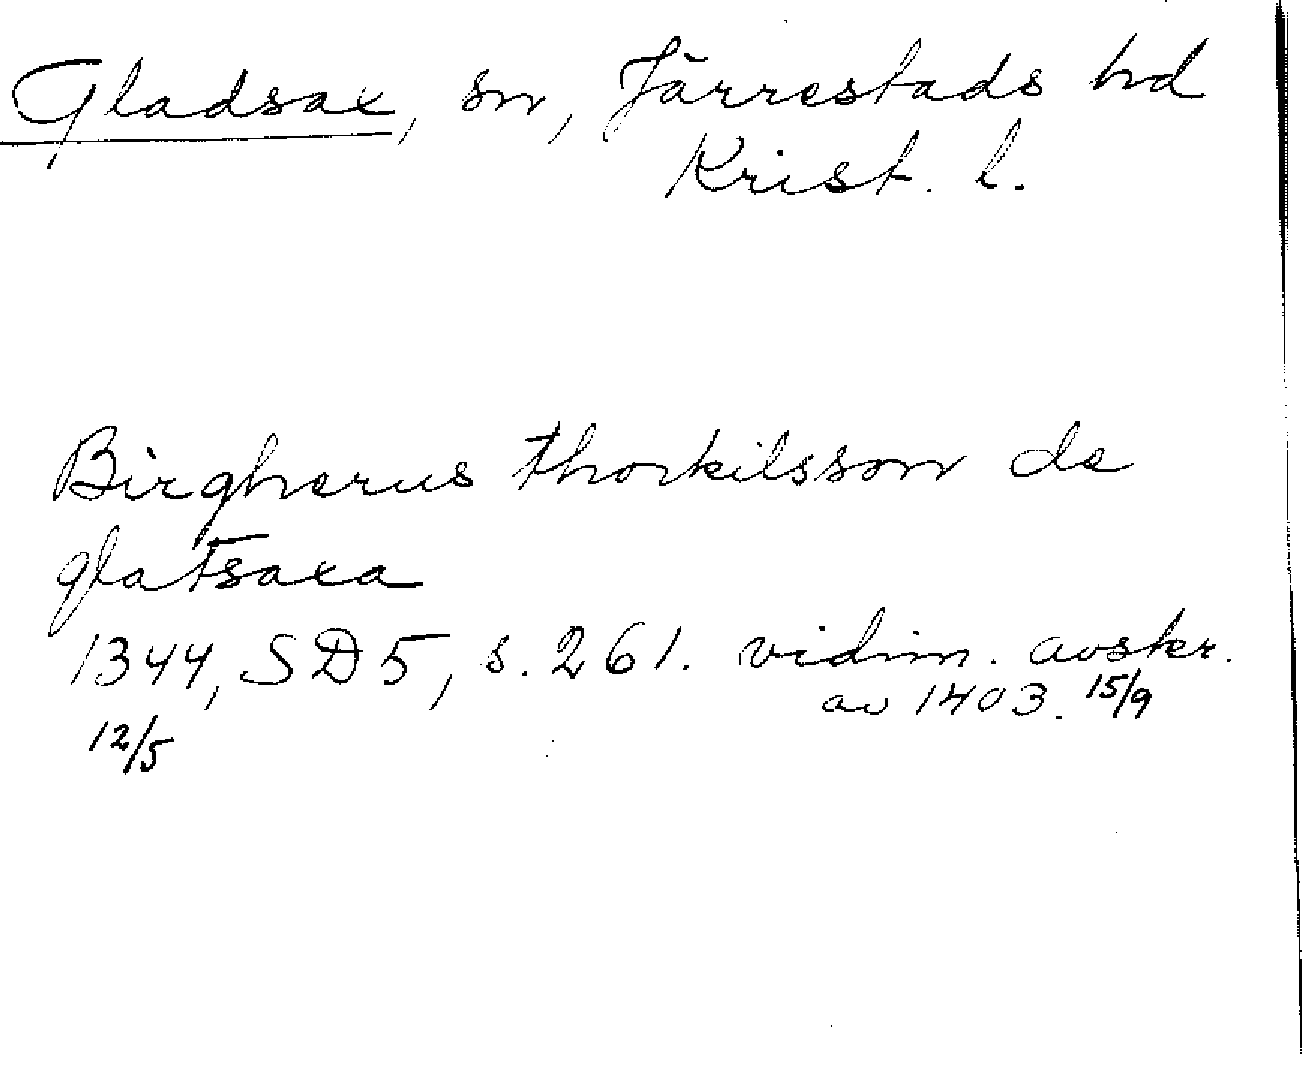 Gladsax, sn, Järrestads hd
Krist. l.
Birgherus thorkilsson de
glatsaxa
1344, SD 5, s. 261. vidim. avskr.
av 1403. 15/9
12/5